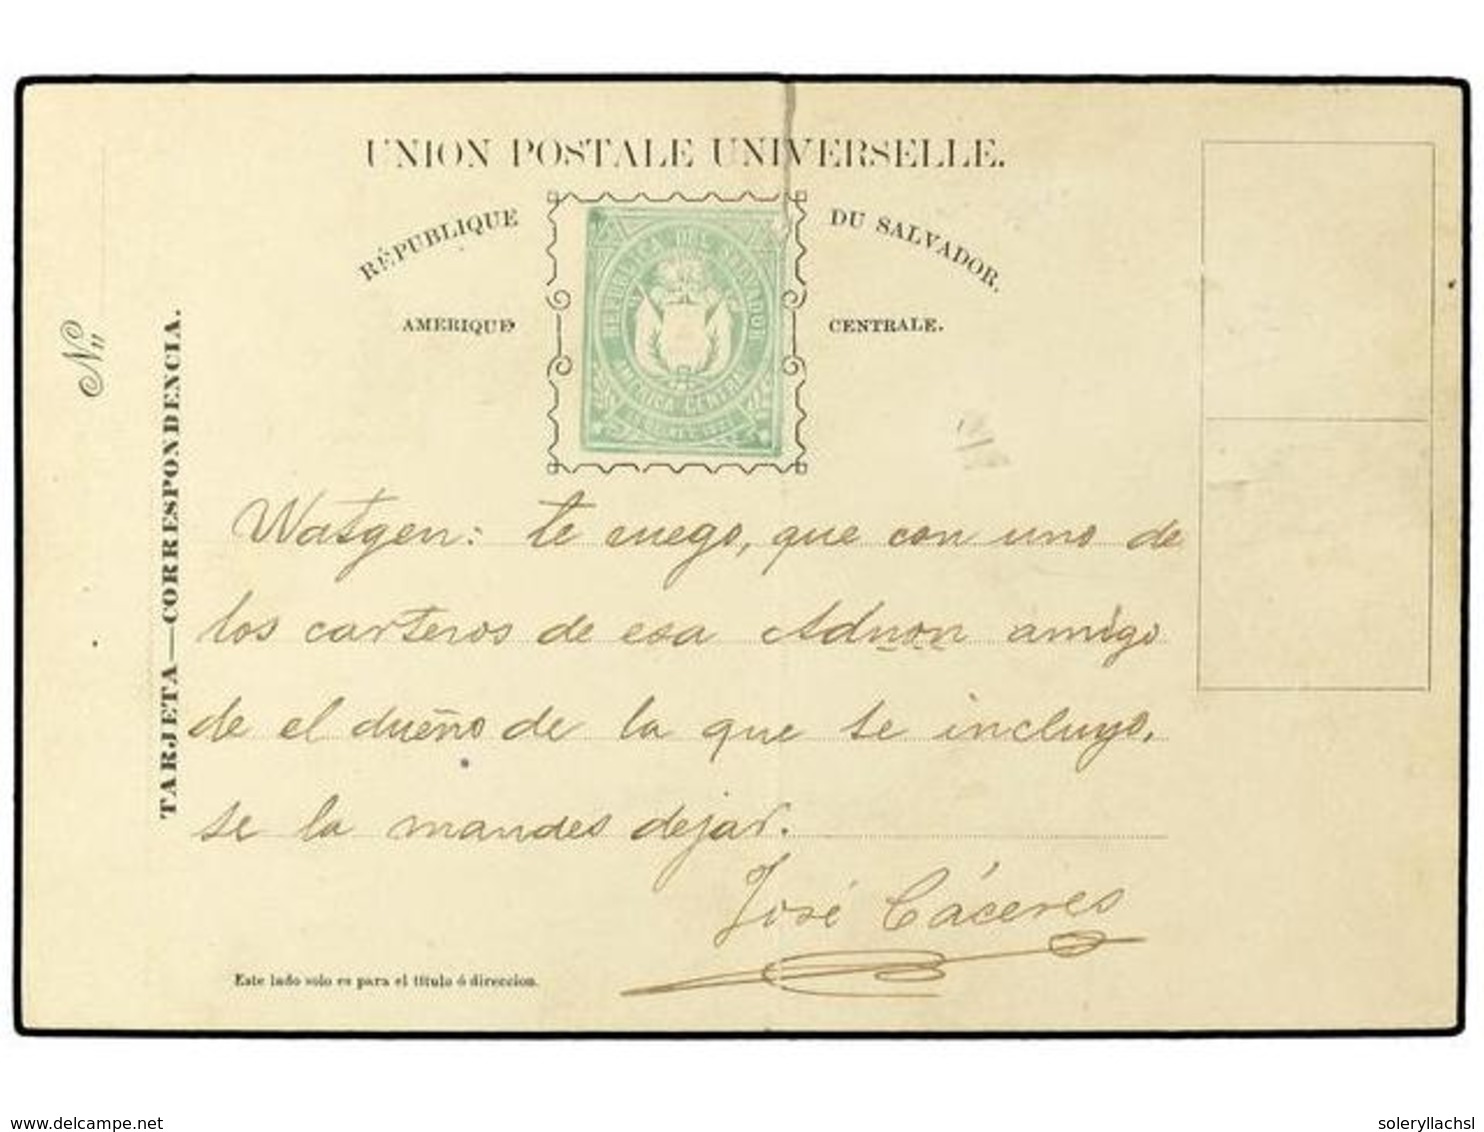 UNION POSTALE UNIVERSELLE.
RÉPUBLIQUE DU SALVADOR.
AMERIQUE CENTRALE.
REPUBLICA DEL SALVADOR
AMERICA CENTRAL
Nº
TARJETA—CORRESPONDENCIA.
Watgen: te ruego, que con uno de
los carteros de esa Adnon amigo
de el dueño de la que te incluyo,
se la mandes dejar.
José Cáceres
Este lado solo es para el título ó direccion.
delcampe.net
soleryllachsl